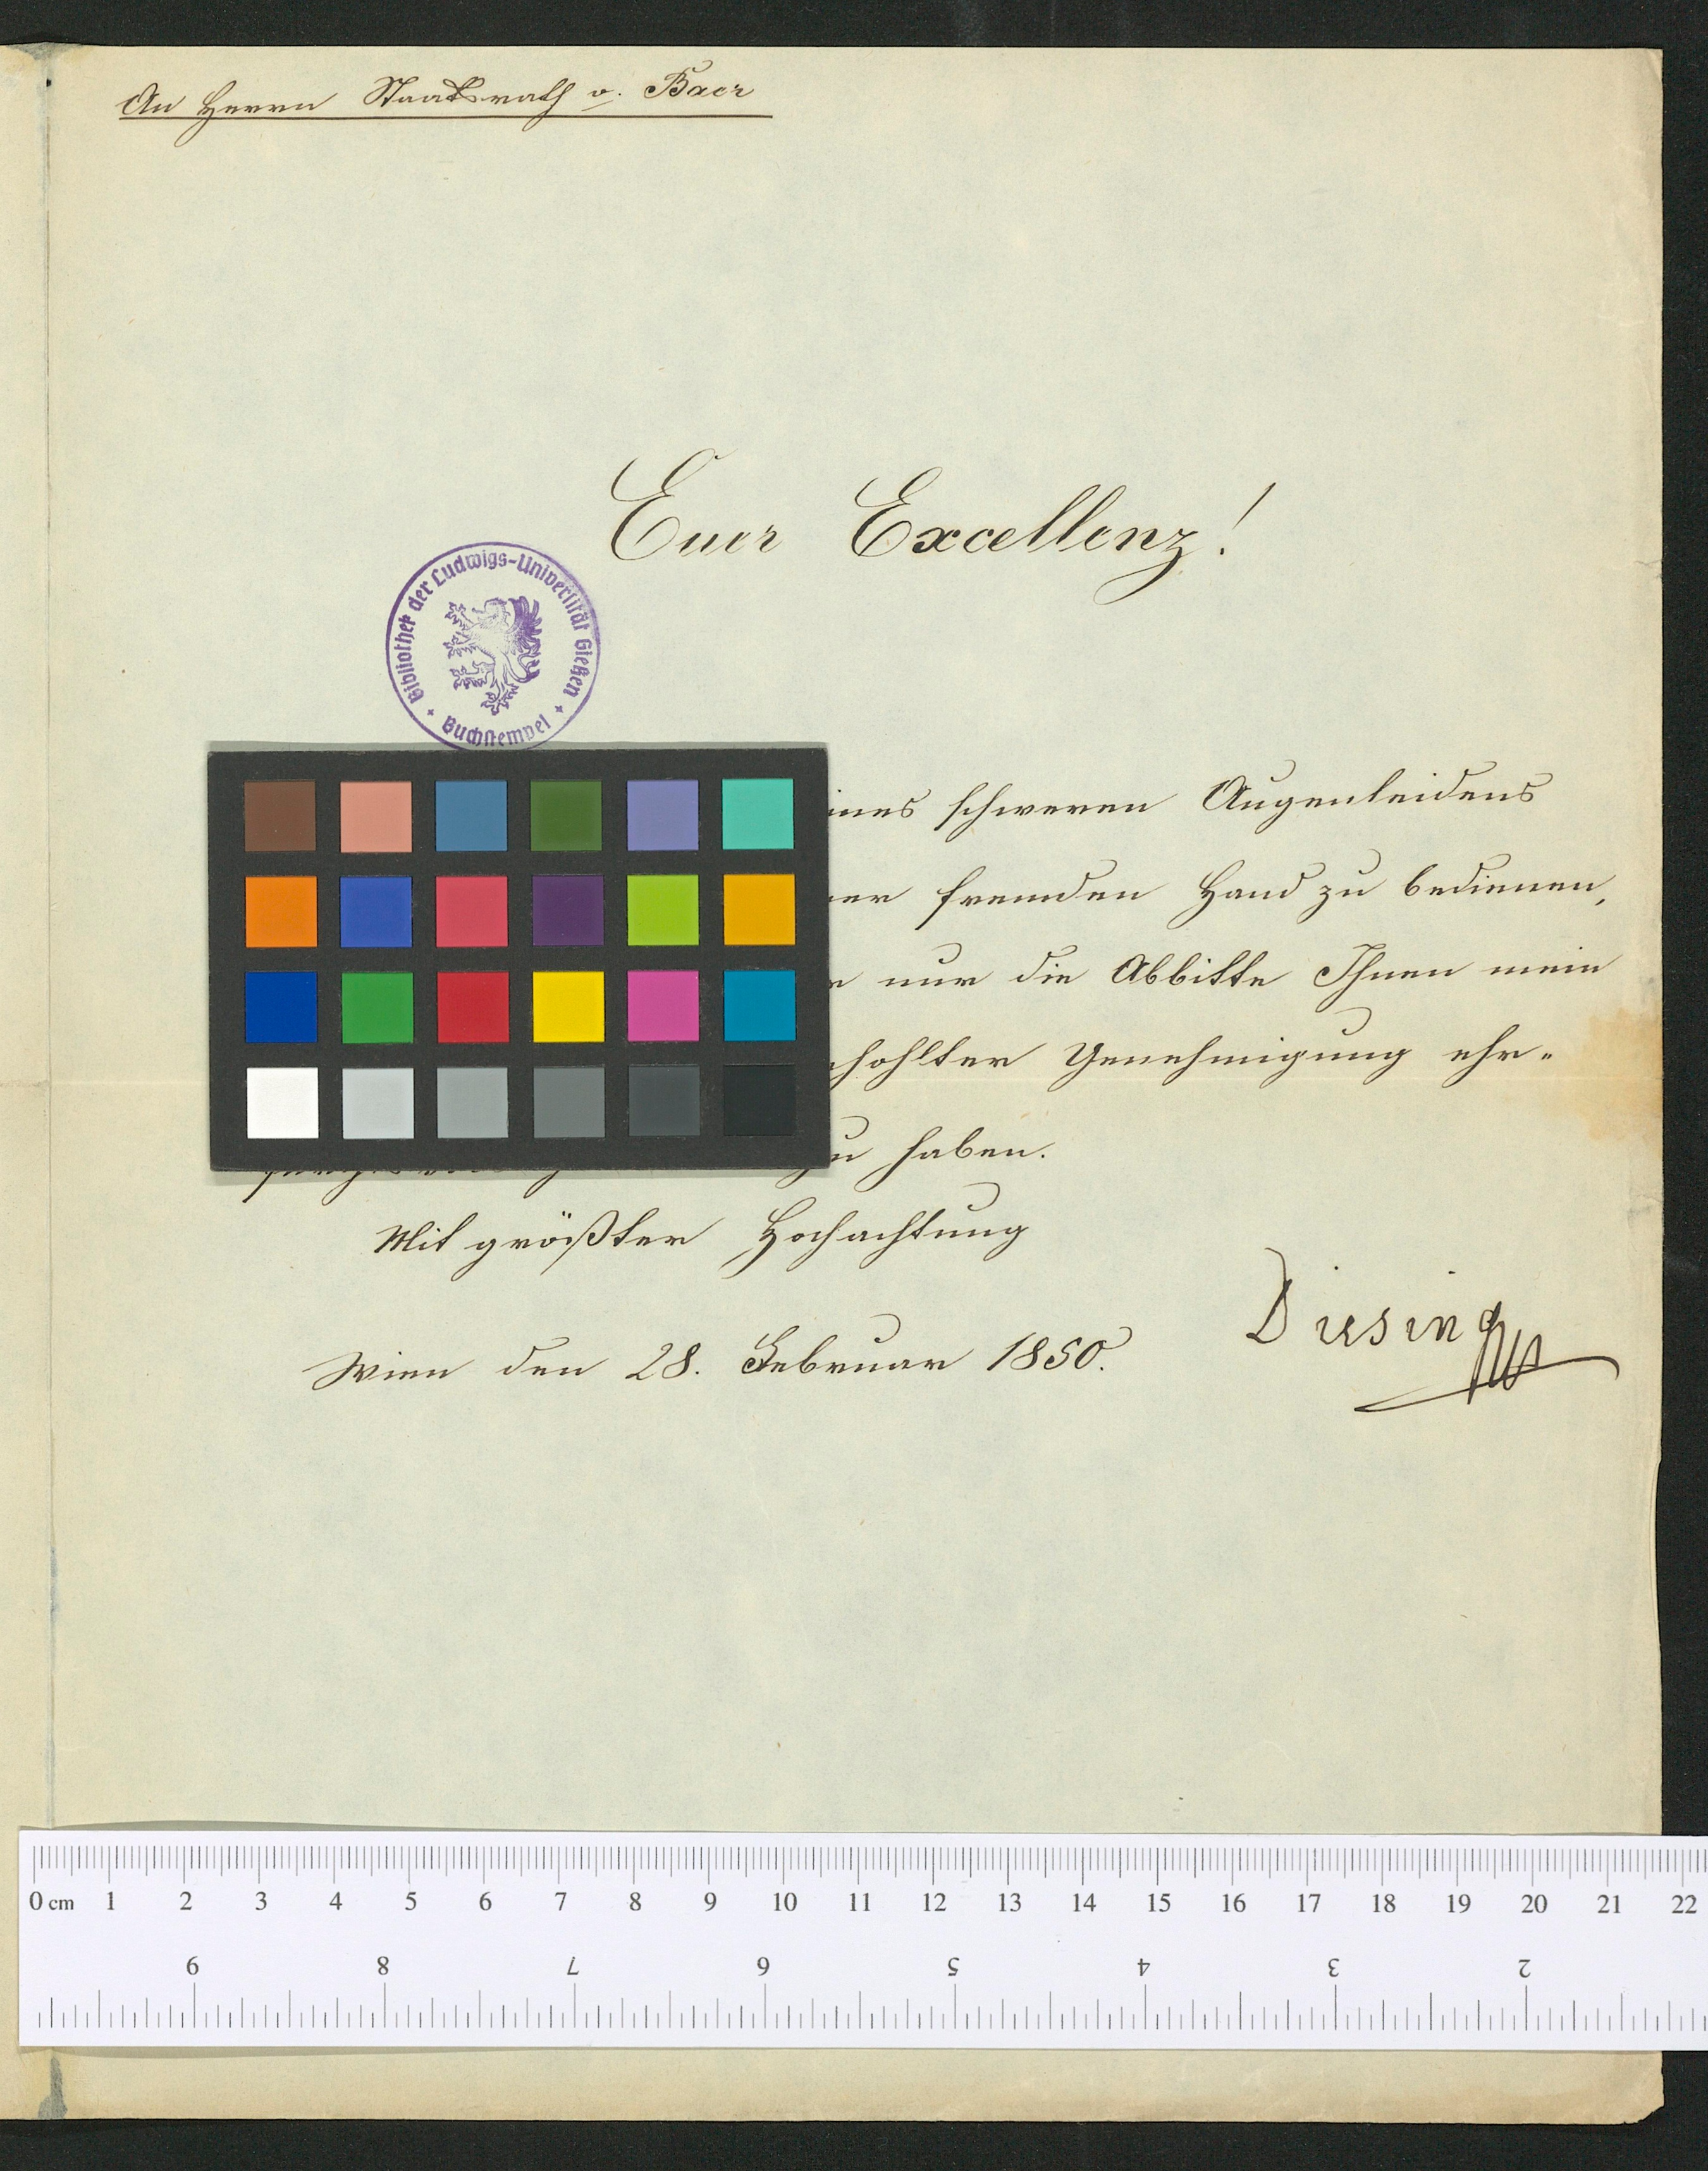 An Herrn Staatsrath v. Baer
Euer Excellenz!
Bibliothek der Ludwigs-Universität Gießen
Buchstempel
schweren Augenleidens
fremden Hand zu bedienen,
nur die Abbitte Ihnen mein
Genehmigung ehr-
haben.
Mit größter Hochachtung
Diesing
Wien den 28. Februar 1850.
0 cm 1 2 3 4 5 6 7 8 9 10 11 12 13 14 15 16 17 18 19 20 21 22
9 8 7 6 5 4 3 2